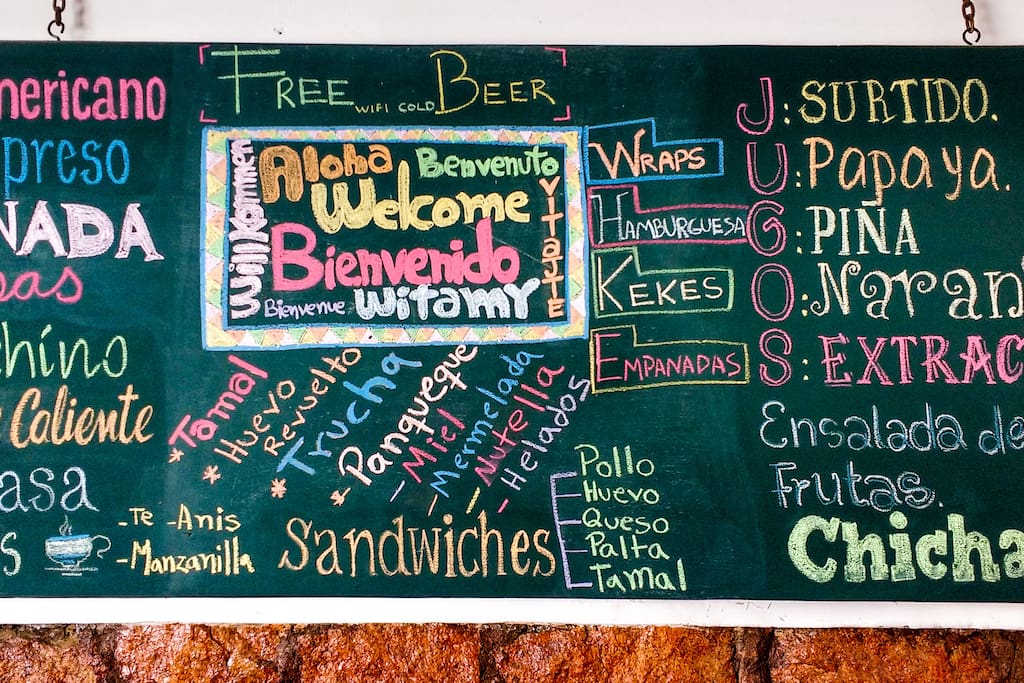 FREE WIFI COLD BEER
mericano
preso
NADA
pas
chino
Caliente
asa
s
-Te -Anis
-Manzanilla
Willkommen
Aloha
Benvenuto
Welcome
Bienvenido
Bienvenue
Witamy
VITAJTE
*Tamal
*Huevo
Revuelto
*Trucha
*Panqueque
-Miel
-Mermelada
-Nutella
-Helados
SANDWICHES
Pollo
Huevo
Queso
Palta
Tamal
WRAPS
HAMBURGUESA
KEKES
EMPANADAS
JUGOS
:SURTIDO.
:Papaya.
:PIÑA
:Naran
:EXTRAC
Ensalada de
Frutas.
Chicha